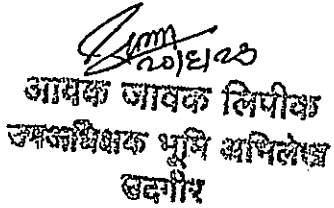 20/6/23
आवक जावक लिपीक
उपअधिक्षक भूमि अभिलेख
उदगीर